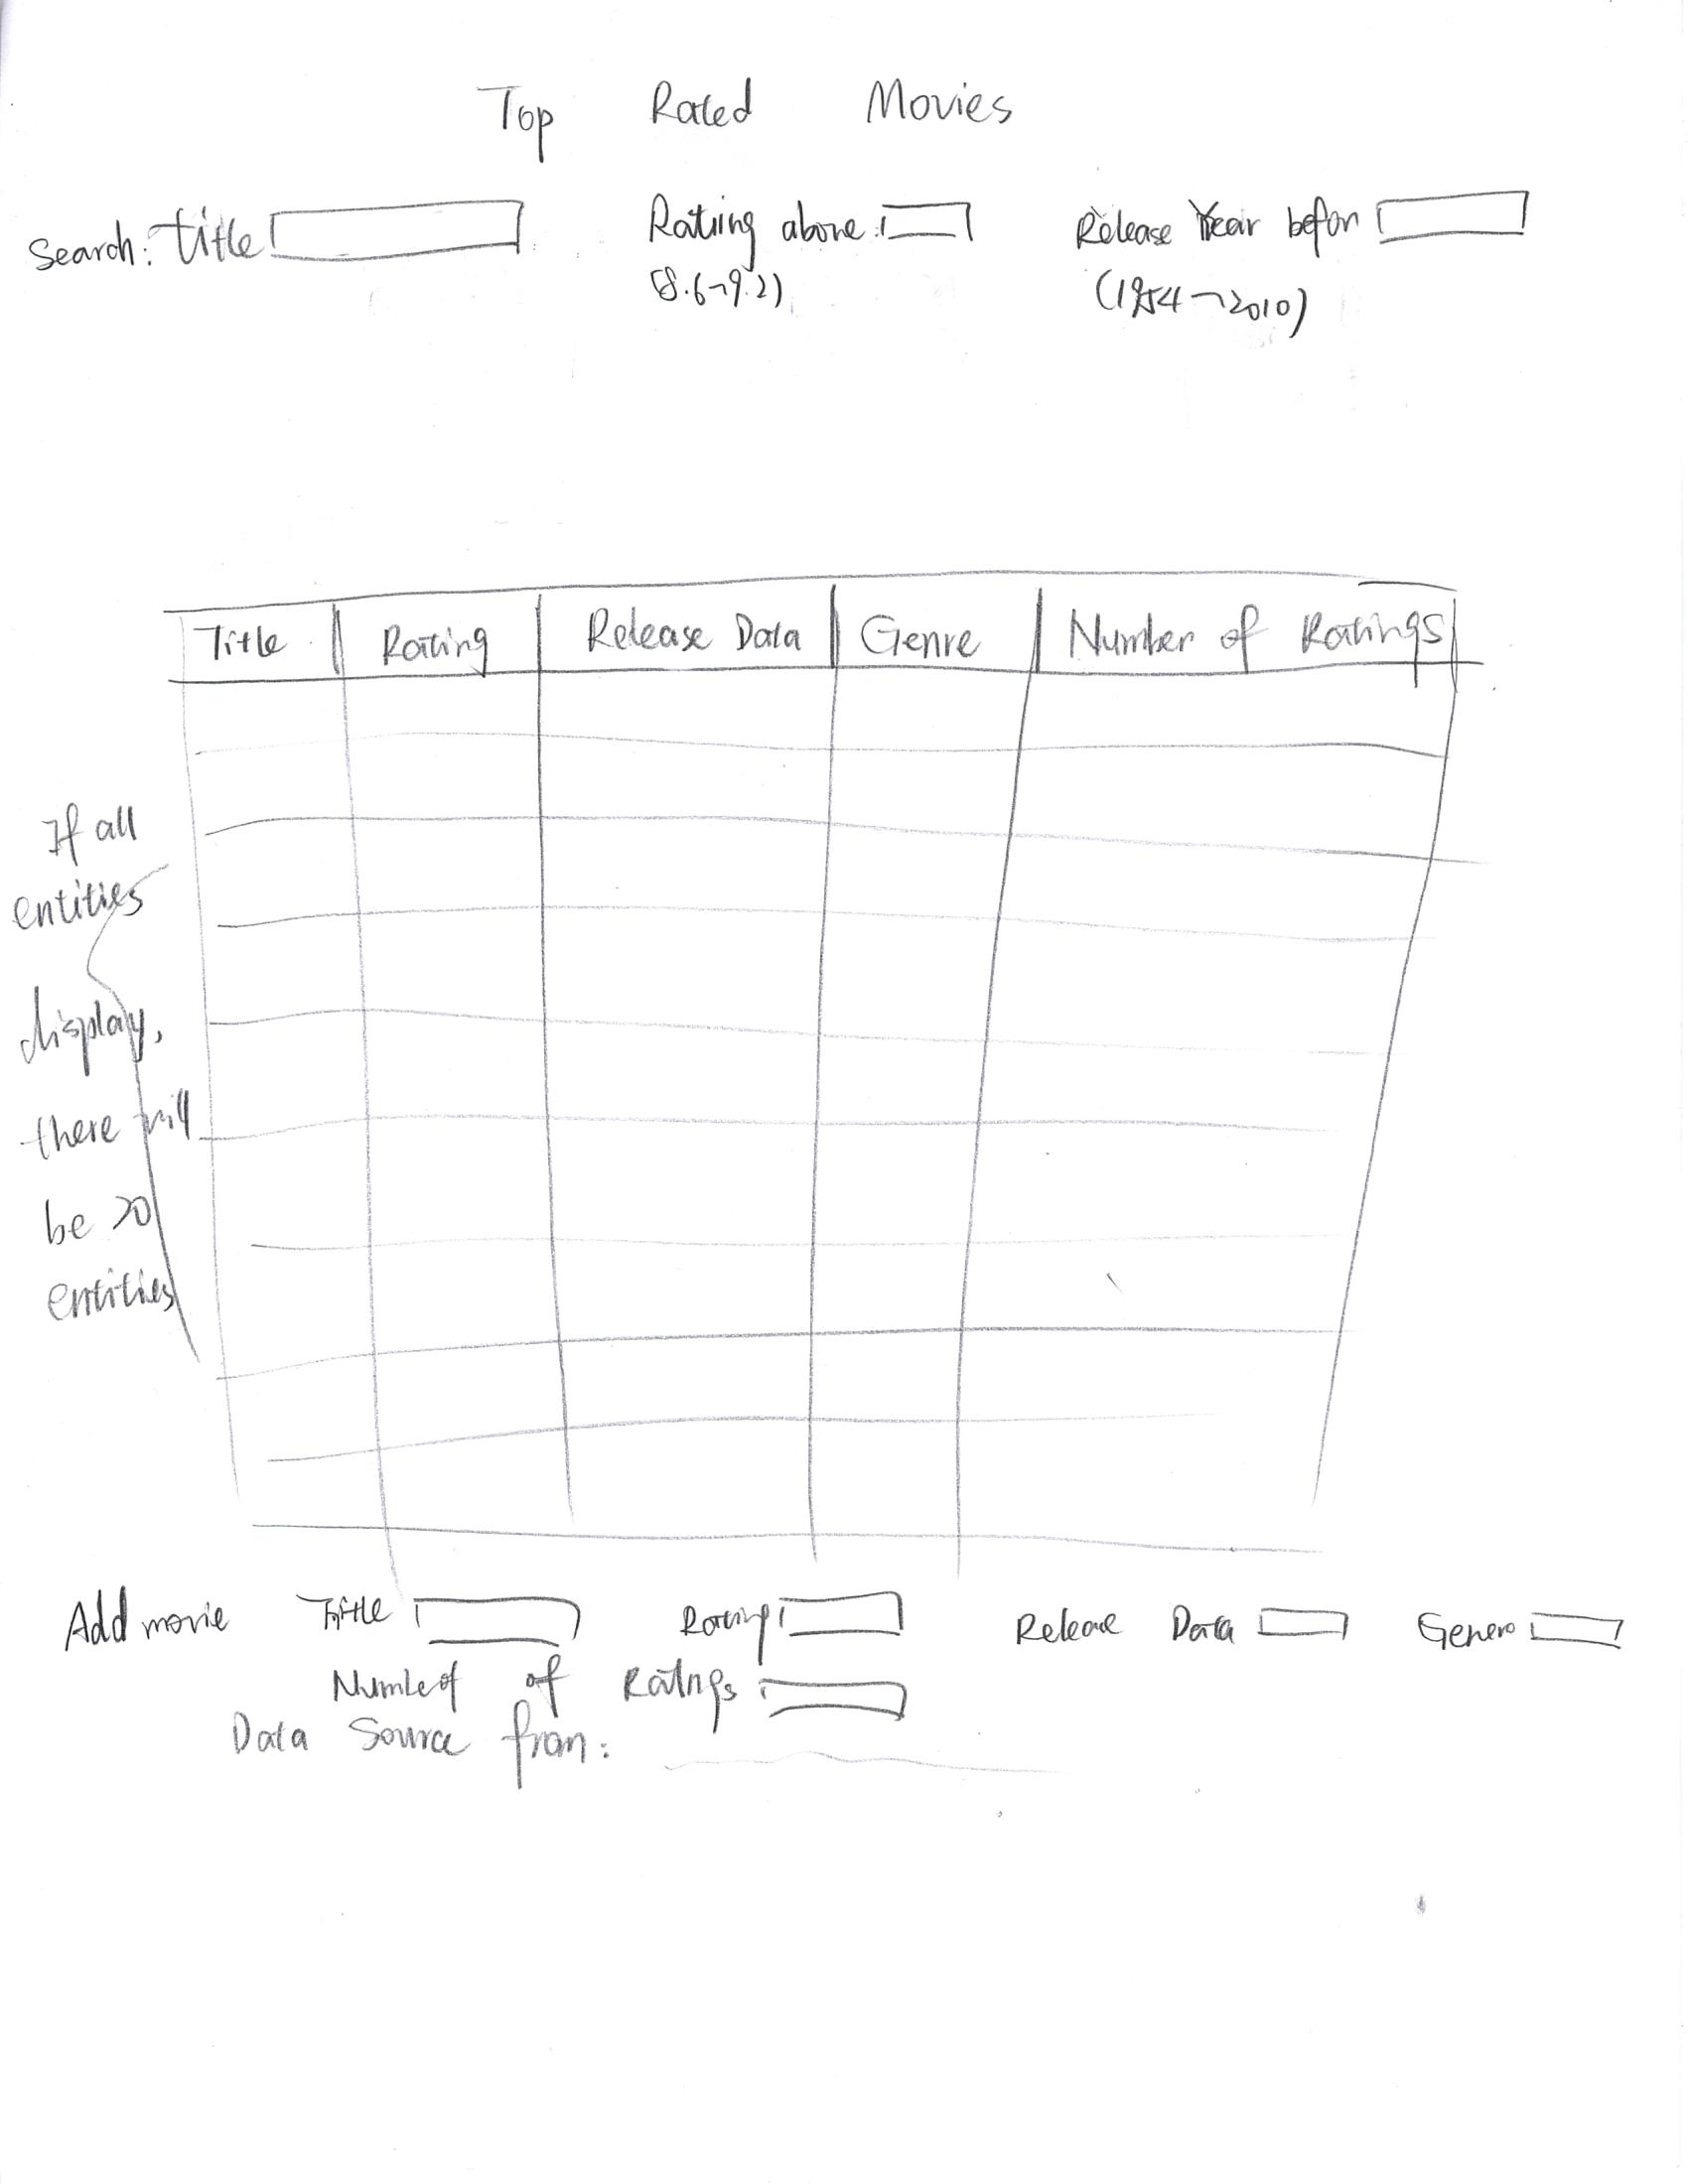 Top Rated Movies
Search: title Ratiing above:
(8.6~9.2)
Release Year befor
(1954~2010)
Title Rating Release Data Genre Number of Ratings
If all
entities
display,
there will
be 20
entities
Add movie Title Rating Release Data Genero
Number of Ratings
Data Source from: